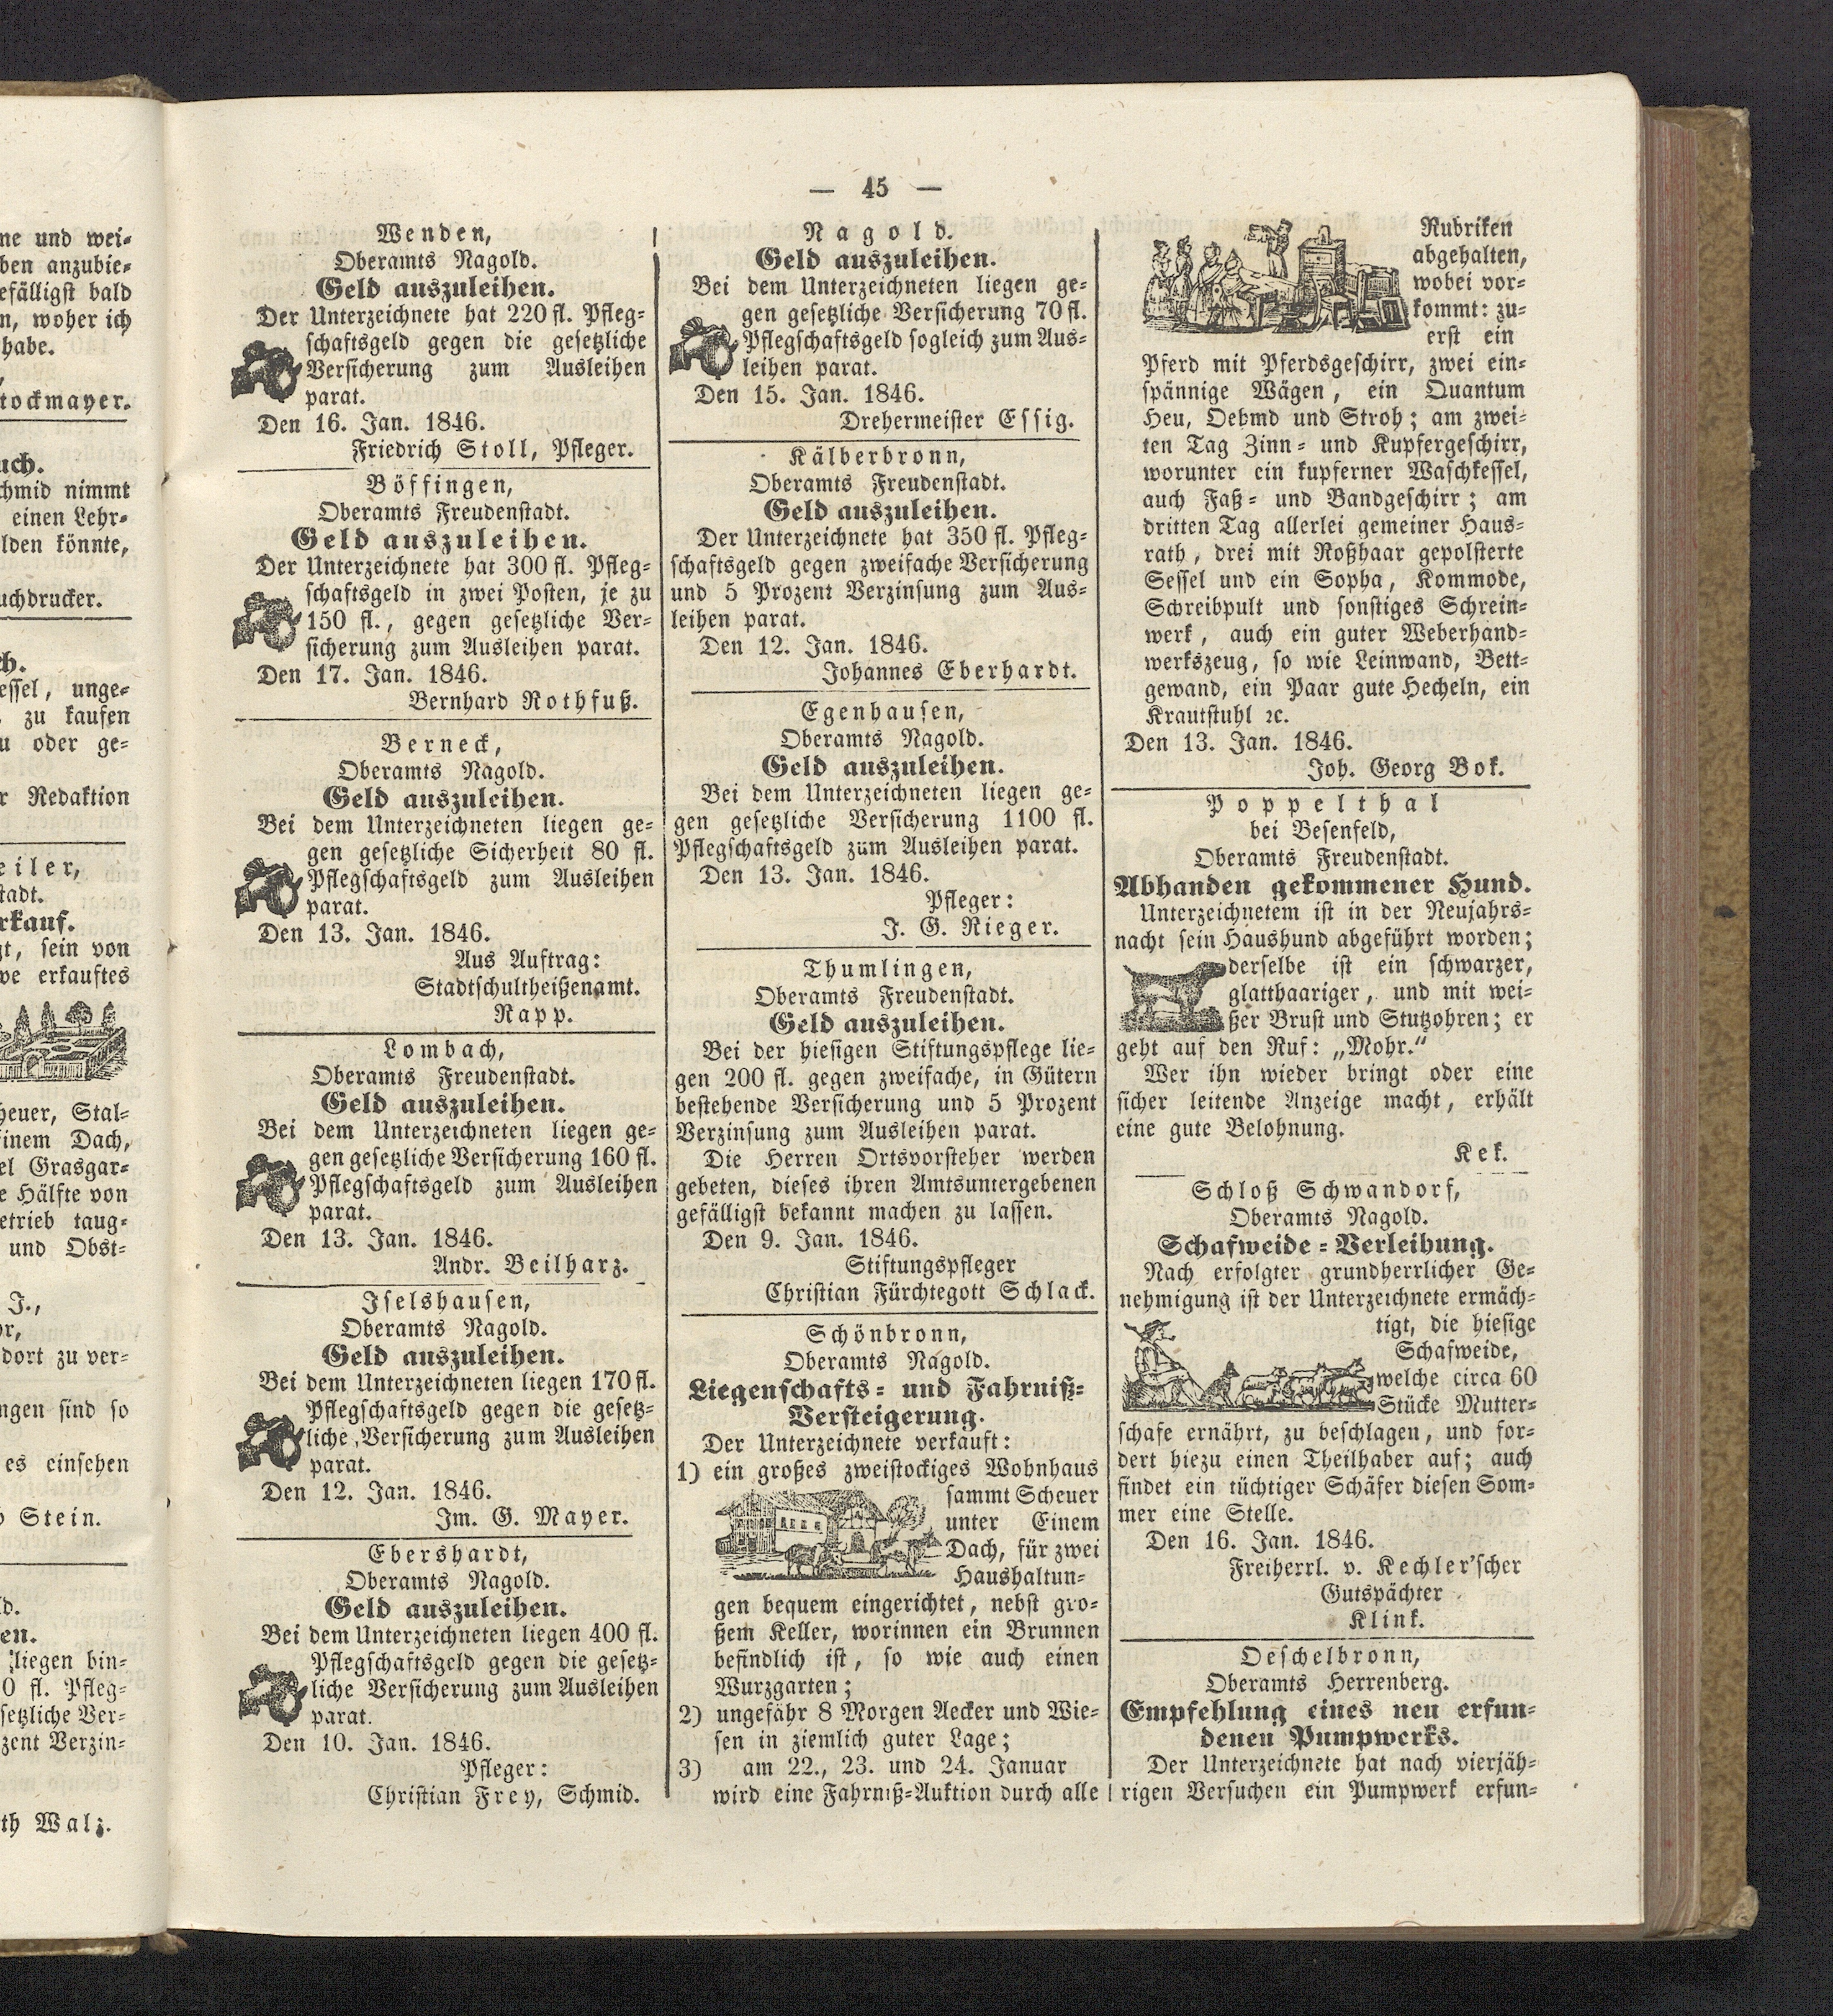 ne und wei-
ben anzubie-
efälligst bald
n, woher ich
habe.
tockmayer.
uch.
chmid nimmt
einen Lehr-
lden könnte,
uchdrucker.
ch.
essel, unge-
zu kaufen
u oder ge-
r Redaktion
eiler,
stadt.
rkauf.
gt, sein von
we erkauftes
heuer, Stal-
inem Dach,
el Grasgar-
e Hälfte von
etrieb taug-
und Obst-
J.,
or,
dort zu ver-
ngen sind so
es einsehen
o Stein.
d.
en.
liegen bin-
0 fl. Pfleg-
setzliche Ver-
zent Verzin-
th Walz.
— 45 —
Wenden,
Oberamts Nagold.
Geld auszuleihen.
Der Unterzeichnete hat 220 fl. Pfleg-
schaftsgeld gegen die gesetzliche
Versicherung zum Ausleihen
parat.
Den 16. Jan. 1846.
Friedrich Stoll, Pfleger.
Böffingen,
Oberamts Freudenstadt.
Geld auszuleihen.
Der Unterzeichnete hat 300 fl. Pfleg-
schaftsgeld in zwei Posten, je zu
150 fl., gegen gesetzliche Ver-
sicherung zum Ausleihen parat.
Den 17. Jan. 1846.
Bernhard Rothfuß.
Berneck,
Oberamts Nagold.
Geld auszuleihen.
Bei dem Unterzeichneten liegen ge-
gen gesetzliche Sicherheit 80 fl.
Pflegschaftsgeld zum Ausleihen
parat.
Den 13. Jan. 1846.
Aus Auftrag:
Stadtschultheißenamt.
Rapp.
Lombach,
Oberamts Freudenstadt.
Geld auszuleihen.
Bei dem Unterzeichneten liegen ge-
gen gesetzliche Versicherung 160 fl.
Pflegschaftsgeld zum Ausleihen
parat.
Den 13. Jan. 1846.
Andr. Beilharz.
Iselshausen,
Oberamts Nagold.
Geld auszuleihen.
Bei dem Unterzeichneten liegen 170 fl.
Pflegschaftsgeld gegen die gesetz-
liche Versicherung zum Ausleihen
parat.
Den 12. Jan. 1846.
Im. G. Mayer.
Ebershardt,
Oberamts Nagold.
Geld auszuleihen.
Bei dem Unterzeichneten liegen 400 fl.
Pflegschaftsgeld gegen die gesetz-
liche Versicherung zum Ausleihen
parat.
Den 10. Jan. 1846.
Pfleger:
Christian Frey, Schmid.
Nagold.
Geld auszuleihen.
Bei dem Unterzeichneten liegen ge-
gen gesetzliche Versicherung 70 fl.
Pflegschaftsgeld sogleich zum Aus-
leihen parat.
Den 15. Jan. 1846.
Drehermeister Essig.
Kälberbronn,
Oberamts Freudenstadt.
Geld auszuleihen.
Der Unterzeichnete hat 350 fl. Pfleg-
schaftsgeld gegen zweifache Versicherung
und 5 Prozent Verzinsung zum Aus-
leihen parat.
Den 12. Jan. 1846.
Johannes Eberhardt.
Egenhausen,
Oberamts Nagold.
Geld auszuleihen.
Bei dem Unterzeichneten liegen ge-
gen gesetzliche Versicherung 1100 fl.
Pflegschaftsgeld zum Ausleihen parat.
Den 13. Jan. 1846.
Pfleger:
J. G. Rieger.
Thumlingen,
Oberamts Freudenstadt.
Geld auszuleihen.
Bei der hiesigen Stiftungspflege lie-
gen 200 fl. gegen zweifache, in Gütern
bestehende Versicherung und 5 Prozent
Verzinsung zum Ausleihen parat.
Die Herren Ortsvorsteher werden
gebeten, dieses ihren Amtsuntergebenen
gefälligst bekannt machen zu lassen.
Den 9. Jan. 1846.
Stiftungspfleger
Christian Fürchtegott Schlack.
Schönbronn,
Oberamts Nagold.
Liegenschafts- und Fahrniß-
Versteigerung.
Der Unterzeichnete verkauft:
1) ein großes zweistockiges Wohnhaus
sammt Scheuer
unter Einem
Dach, für zwei
Haushaltun-
gen bequem eingerichtet, nebst gro-
ßem Keller, worinnen ein Brunnen
befindlich ist, so wie auch einen
Wurzgarten;
2) ungefähr 8 Morgen Aecker und Wie-
sen in ziemlich guter Lage;
3) am 22., 23. und 24. Januar
wird eine Fahrniß-Auktion durch alle
Rubriken
abgehalten,
wobei vor-
kommt: zu-
erst ein
Pferd mit Pferdsgeschirr, zwei ein-
spännige Wägen, ein Quantum
Heu, Oehmd und Stroh; am zwei-
ten Tag Zinn- und Kupfergeschirr,
worunter ein kupferner Waschkessel,
auch Faß- und Bandgeschirr; am
dritten Tag allerlei gemeiner Haus-
rath, drei mit Roßhaar gepolsterte
Sessel und ein Sopha, Kommode,
Schreibpult und sonstiges Schrein-
werk, auch ein guter Weberhand-
werkszeug, so wie Leinwand, Bett-
gewand, ein Paar gute Hecheln, ein
Krautstuhl ꝛc.
Den 13. Jan. 1846.
Joh. Georg Bok.
Poppelthal
bei Besenfeld,
Oberamts Freudenstadt.
Abhanden gekommener Hund.
Unterzeichnetem ist in der Neujahrs-
nacht sein Haushund abgeführt worden;
derselbe ist ein schwarzer,
glatthaariger, und mit wei-
ßer Brust und Stutzohren; er
geht auf den Ruf: „Mohr.“
Wer ihn wieder bringt oder eine
sicher leitende Anzeige macht, erhält
eine gute Belohnung.
Kek.
Schloß Schwandorf,
Oberamts Nagold.
Schafweide-Verleihung.
Nach erfolgter grundherrlicher Ge-
nehmigung ist der Unterzeichnete ermäch-
tigt, die hiesige
Schafweide,
welche circa 60
Stücke Mutter-
schafe ernährt, zu beschlagen, und for-
dert hiezu einen Theilhaber auf; auch
findet ein tüchtiger Schäfer diesen Som-
mer eine Stelle.
Den 16. Jan. 1846.
Freiherrl. v. Kechler'scher
Gutspächter
Klink.
Oeschelbronn,
Oberamts Herrenberg.
Empfehlung eines neu erfun-
denen Pumpwerks.
Der Unterzeichnete hat nach vierjäh-
rigen Versuchen ein Pumpwerk erfun-